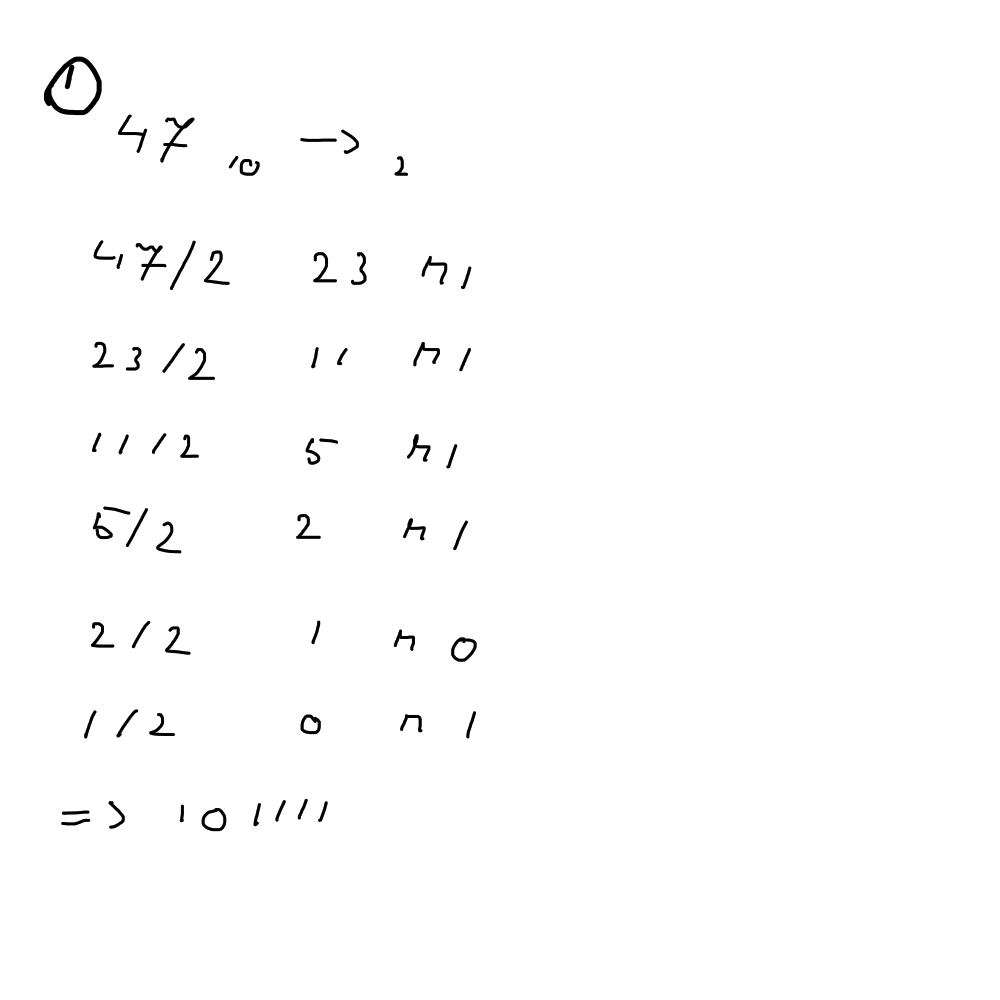 ①
47 10 -> 2
47/2 23 r1
23/2 11 r1
11/2 5 r1
5/2 2 r1
2/2 1 r0
1/2 0 r1
=> 101111